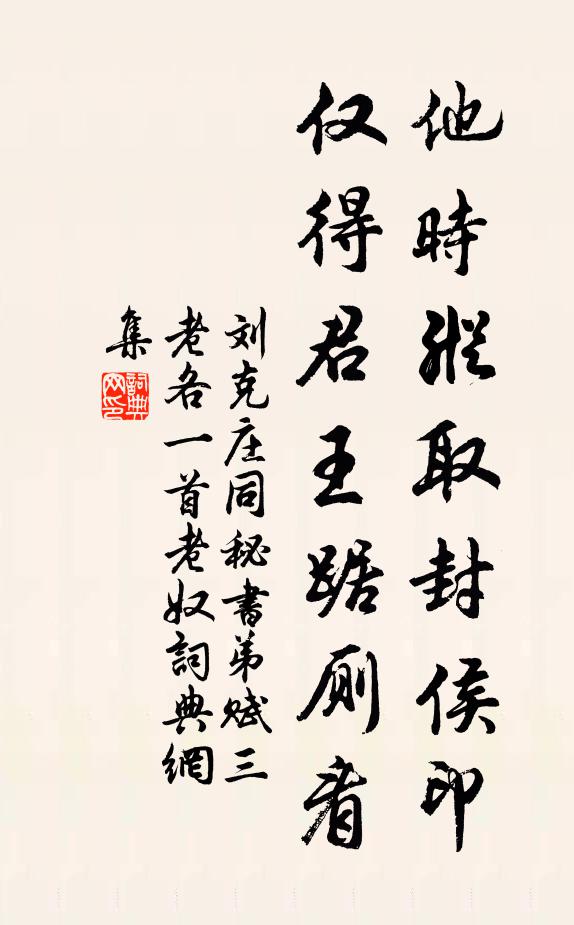 他時縱取封侯印
仅得君王踞厠看
刘克庄同秘書弟赋三
老各一首老奴詞典網
集
詞典网印